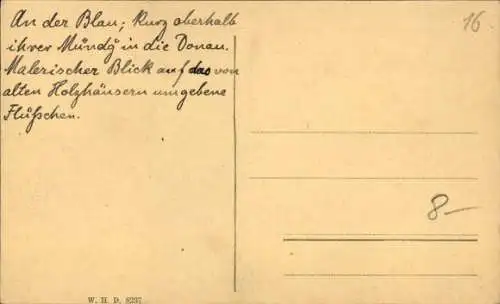 An der Blau; Kurz oberhalb
ihrer Mündg in die Donau.
Malerischer Blick auf das von
alten Holzhäusern umgebene
Flüßchen.
16
8—
W. H. D. 8237